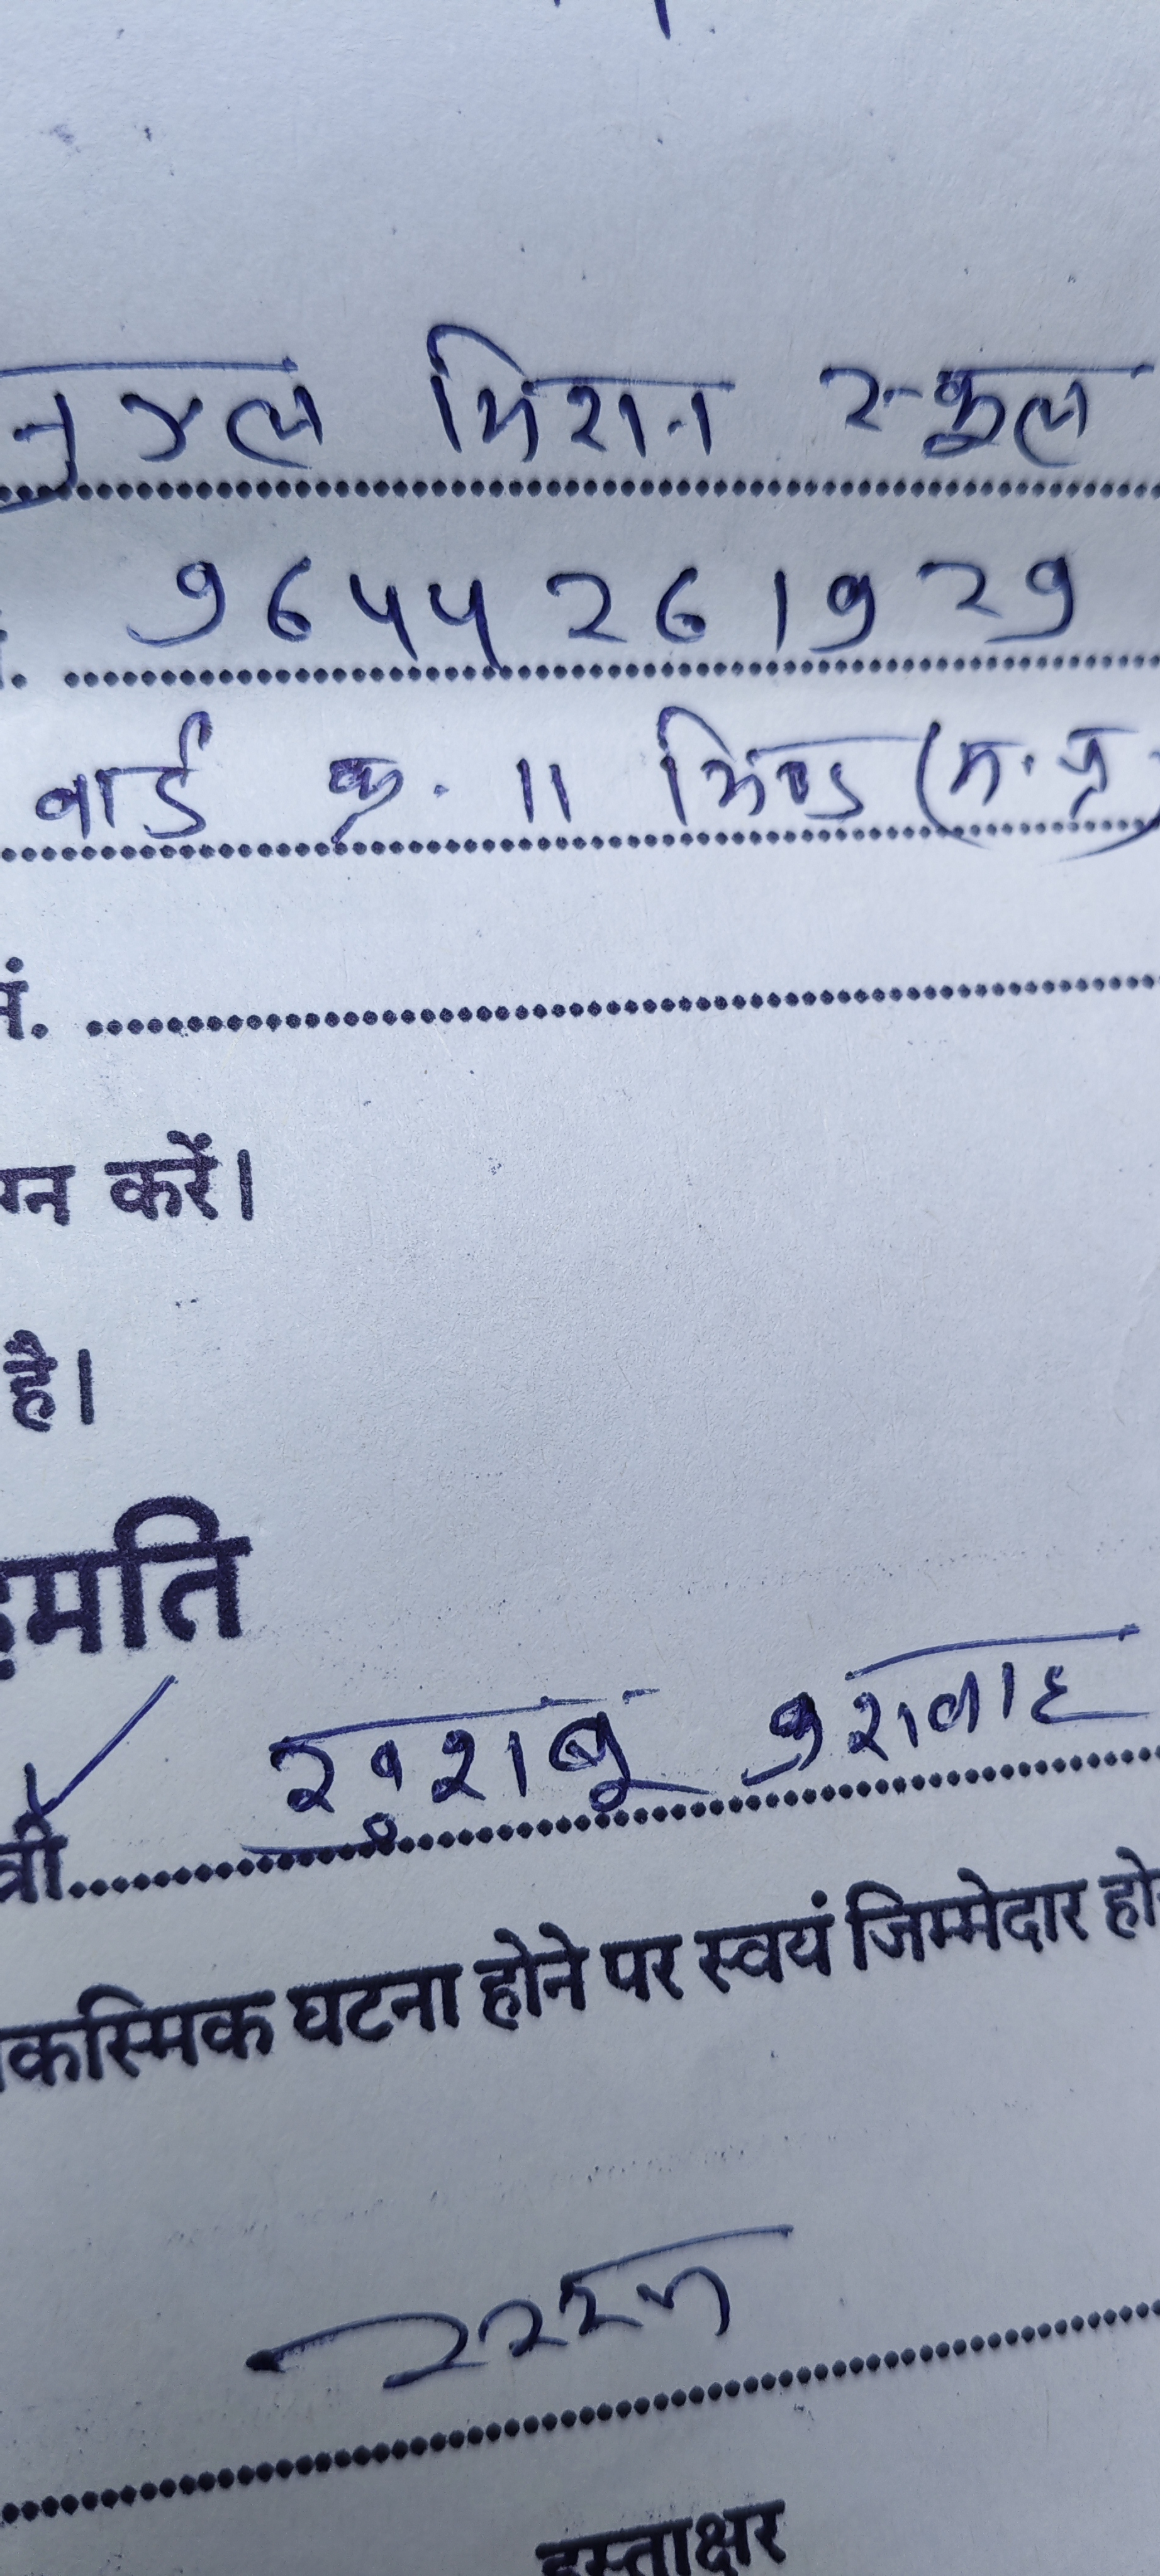 मिशन स्कूल
9644261929
वार्ड क्र. 11 भिण्ड (म.प्र)
नं. ........................
ग्न करें।
है।
हमति
त्री........ खुशबू कुशवाह
कस्मिक घटना होने पर स्वयं जिम्मेदार हो
हस्ताक्षर